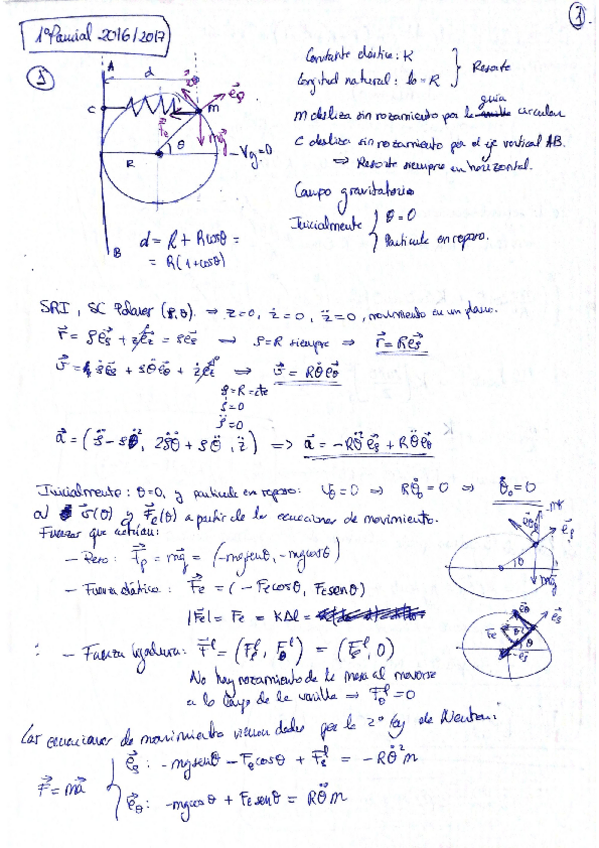 1
1º Parcial 2016/2017
5
A
d
C
m
R
θ
V_g=0
B
d = R + Rcosθ =
= R(1+cosθ)
Constante elástica: K
Longitud natural: l₀ = R
} Resorte
m desliza sin rozamiento por la guía circular
C desliza sin rozamiento por el eje vertical AB.
⇒ Resorte siempre en horizontal.
Campo gravitatorio
Inicialmente { θ=0
Partícula en reposo.
SRI, SC Polares (ρ,θ). ⇒ z=0, ż=0, z̈=0, movimiento en un plano.
r⃗ = ρe⃗ρ + ze⃗z = ρe⃗ρ ⟹ ρ=R siempre ⟹ r⃗ = Re⃗ρ
v⃗ = ρ̇e⃗ρ + ρθ̇e⃗θ + że⃗z ⟹ v⃗ = Rθ̇e⃗θ
ρ=R=cte
ρ̇=0
ρ̈=0
a⃗ = (ρ̈-ρθ̇², 2ρ̇θ̇ + ρθ̈, z̈) ⟹ a⃗ = -Rθ̇²e⃗ρ + Rθ̈e⃗θ
Inicialmente: θ=0, y partícula en reposo: v₀=0 ⟹ Rθ̇₀=0 ⟹ θ̇₀=0
a) v⃗(θ) y F⃗e(θ) a partir de las ecuaciones de movimiento.
Fuerzas que actúan:
- Peso: F⃗p = mg⃗ = (-mgsenθ, -mgcosθ)
- Fuerza elástica: F⃗e = (-Fecosθ, Fesenθ)
|F⃗e| = Fe = KΔl =
- Fuerza ligadura: F⃗ˡ = (Fρˡ, Fθˡ) = (Fρˡ, 0)
No hay rozamiento de la masa al moverse
a lo largo de la varilla ⟹ Fθˡ = 0
Las ecuaciones de movimiento vienen dadas por la 2º Ley de Newton:
F⃗=ma⃗ { e⃗ρ: -mgsenθ - Fecosθ + Fρˡ = -Rθ̇²m
e⃗θ: -mgcosθ + Fesenθ = Rθ̈m